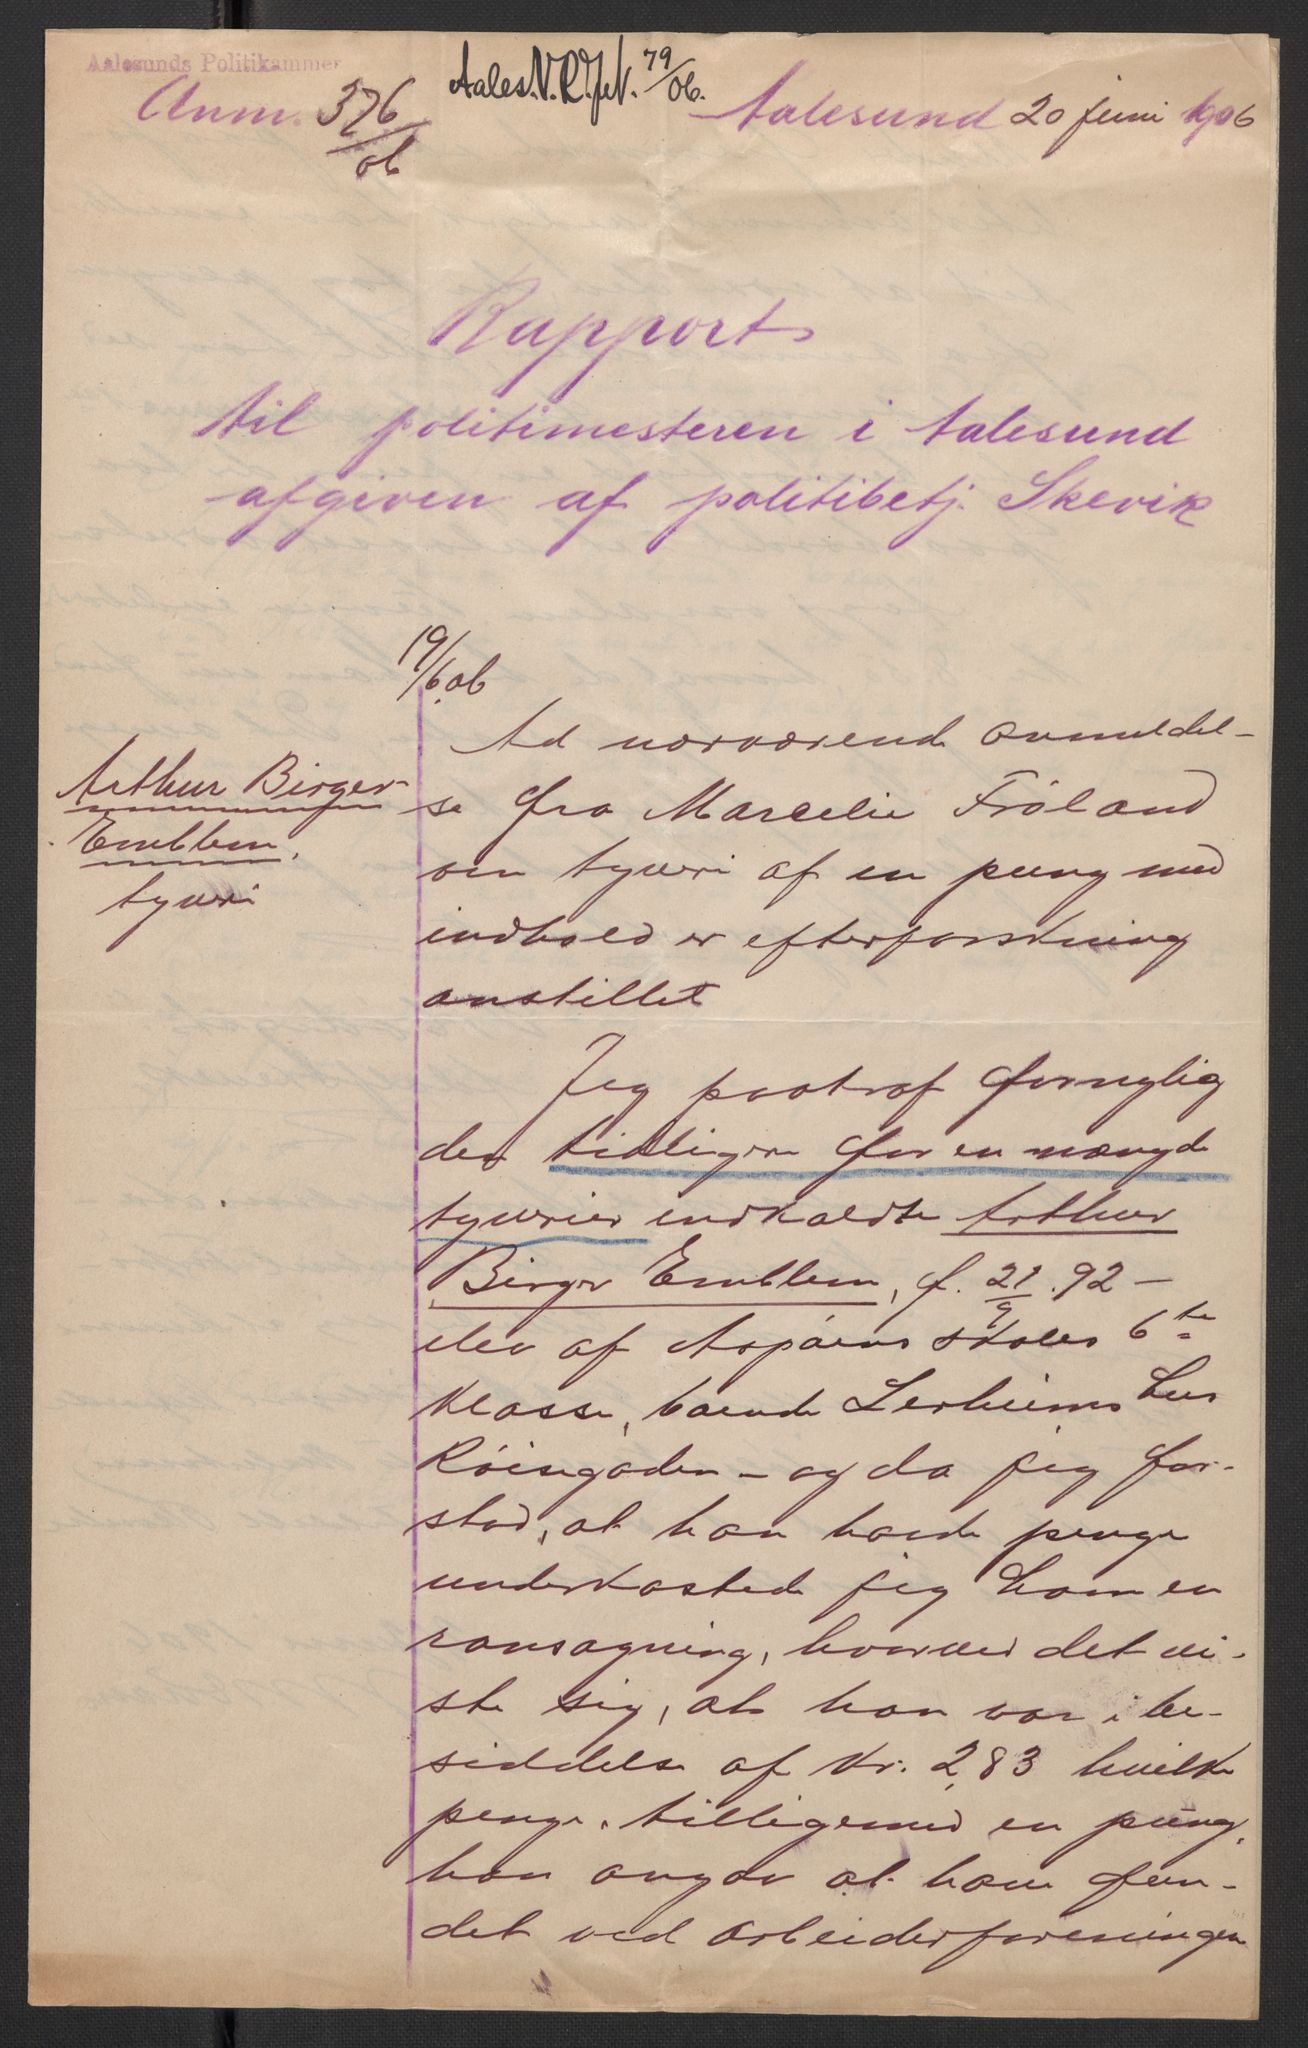 Aalesunds Politikammer
Anm. 376/06
Aales. V. R. J. N. 79/06.
Aalesund 20 juni 1906
Rapport
til politimesteren i Aalesund
afgiven af politibetj. Skevik
19/6.06
Arthur Birger
Emblem,
tyveri
Ad nærværende anmeldel-
se fra Marcelie Frøland
om tyveri af en pung med
indhold er efterforskning
anstillet
Jeg paatraf fornylig
den tidligere for en mængde
tyverier indkaldte Arthur
Birger Emblem, f. 21/9.92 –
elev af Aspøens skoles 6te
klasse, boende Lerheims hus
Røisegaden – og da jeg for-
stod, at han havde penge
underkastede jeg ham en
ransagning, hvorved det vi-
ste sig, at han var i be-
siddelse af kr. 2,83 hvilke
penge, tilligemed en pung,
han angav at have fun-
det ved arbeiderforeningen